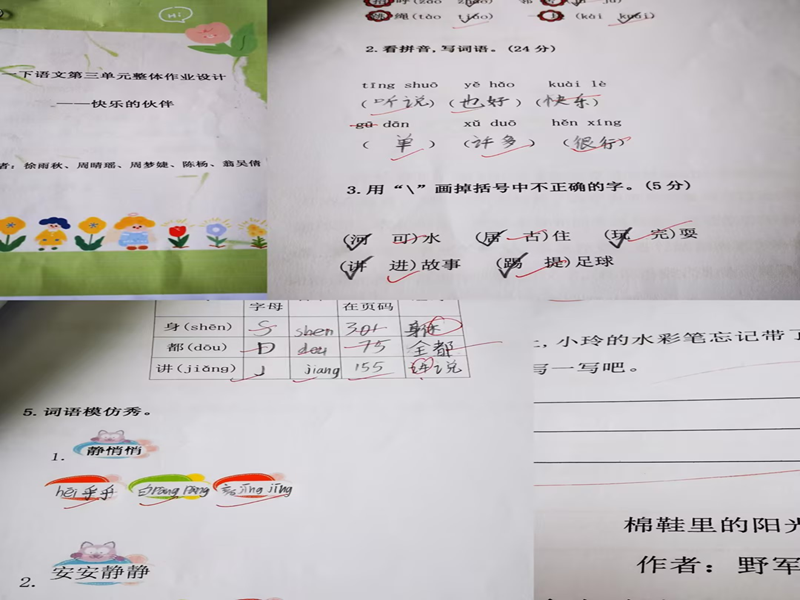 Hi
一下语文第三单元整体作业设计
——快乐的伙伴
者：徐雨秋、周晴瑶、周梦婕、陈杨、翁昊倩
绳(tào tiáo)
(kài kuài)
2.看拼音,写词语。(24分)
tīng shuō yě hǎo kuài lè
(听说) (也好) (快乐)
gū dān xǔ duō hěn xíng
( 单 ) (许多) (很行)
3.用“\”画掉括号中不正确的字。(5分)
(河 可)水 (居 古)住 (玩 完)耍
(讲 进)故事 (踢 提)足球
字母 在页码
身(shēn) S shen 301
都(dōu) D dou 75 全都
讲(jiǎng) J jiang 155 讲说
5.词语模仿秀。
1. 静悄悄
hēi乎乎
2. 安安静静
小玲的水彩笔忘记带了
写一写吧。
棉鞋里的阳光
作者：野军